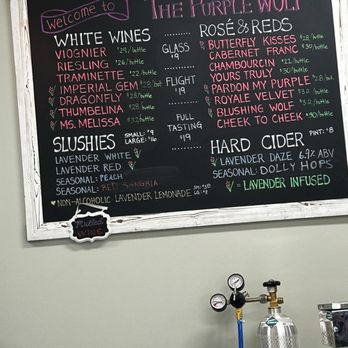 Welcome to THE PURPLE WOLF
WHITE WINES
VIOGNIER $29/bottle
RIESLING $26/bottle
TRAMINETTE $22/bottle
IMPERIAL GEM $28/bot
DRAGONFLY $28/bottle
THUMBELINA $28/bottle
MS. MELISSA $32/bottle
GLASS
$9
FLIGHT
$19
FULL
TASTING
$19
ROSÉ & REDS
BUTTERFLY KISSES $28/bot
CABERNET FRANC $30/bot
CHAMBOURCIN $22/bottle
YOURS TRULY $30/bottle
PARDON MY PURPLE $28/bot
ROYALE VELVET $32/bottle
BLUSHING WOLF $32/bottle
CHEEK TO CHEEK $30/bottle
SLUSHIES SMALL: $9
LARGE: $16
LAVENDER WHITE
LAVENDER RED
SEASONAL: PEACH
SEASONAL: RED SANGRIA
NON-ALCOHOLIC LAVENDER LEMONADE
HARD CIDER PINT: $8
LAVENDER DAZE 6.9% ABV
SEASONAL: DOLLY HOPS
= LAVENDER INFUSED
WINE